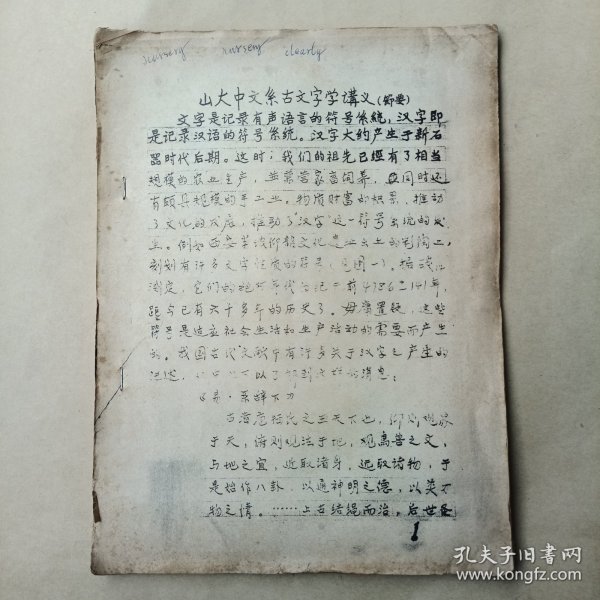 nursery clearly
山大中文系古文字学講义(節要)
文字是记录有声语言的符号系统，汉字即
是记录汉语的符号系统。汉字大约产生于新石
器时代后期。这时，我们的祖先已經有了相当
规模的农业生产，並兼营家畜饲养，同时还
有頗具规模的手工业。物质财富的积累，推动
了文化的发展，推动了"汉字"这一符号系统的发
例如西安半坡仰韶文化遗址出土的彩陶上，
刻划有许多文字性质的符号(见图一)。
测定，它们的绝对年代为 前4786±141年，
距今已有六千多年的历史了。毋庸置疑，这些
符号是适应社会生活和生产活动的需要而产生
的。我国古代文献中有许多关于汉字之产生的
记述，
《易·系辞下》
古者庖牺氏之王天下也，仰则观象
于天，俯则观法于地，观鸟兽之文，
与地之宜，近取诸身，远取诸物，于
是始作八卦，以通神明之德，以类万
物之情。……上古结绳而治，后世圣
1
孔夫子旧书网
www.kongfz.com